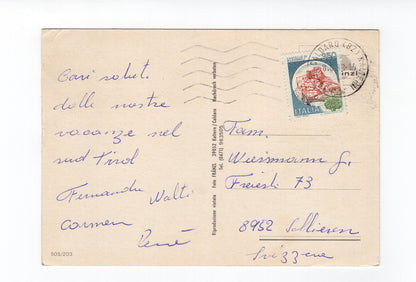 Cari saluti
dalle nostre
vacanze nel
sud Tirol
Fernanda
Carmen
René
505/203
Riproduzione vietata
Foto FRÄNZL 39052 Kaltern / Caldaro
Tel. (0471) 963505
Nachdruck verboten
ITALIA
Fam.
Wiesmann G.
Freiestr 73
8952 Schlieren
Svizzera